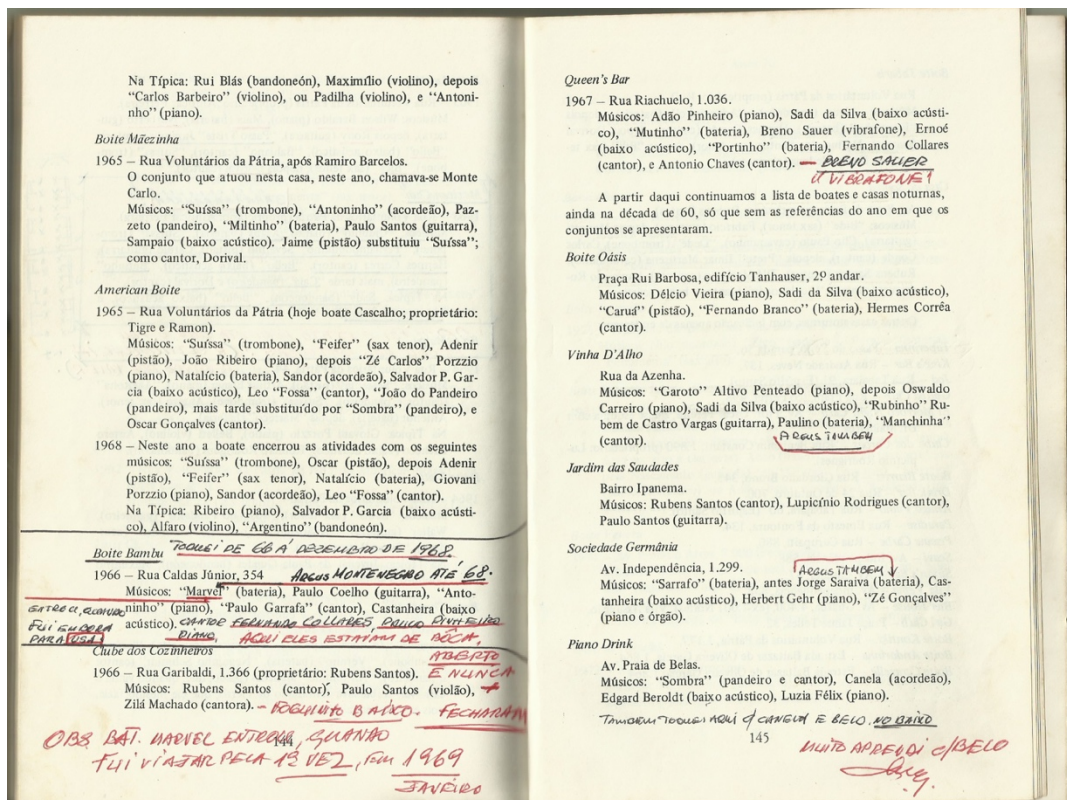 Na Típica: Rui Blás (bandoneón), Maximílio (violino), depois
“Carlos Barbeiro” (violino), ou Padilha (violino), e “Antoni-
nho” (piano).
Boite Mãezinha
1965 — Rua Voluntários da Pátria, após Ramiro Barcelos.
O conjunto que atuou nesta casa, neste ano, chamava-se Monte
Carlo.
Músicos: “Suíssa” (trombone), “Antoninho” (acordeão), Paz-
zeto (pandeiro), “Miltinho” (bateria), Paulo Santos (guitarra),
Sampaio (baixo acústico). Jaime (pistão) substituiu “Suíssa”;
como cantor, Dorival.
American Boite
1965 — Rua Voluntários da Pátria (hoje boate Cascalho; proprietário:
Tigre e Ramon).
Músicos: “Suíssa” (trombone), “Feifer” (sax tenor), Adenir
(pistão), João Ribeiro (piano), depois “Zé Carlos” Porzzio
(piano), Natalício (bateria), Sandor (acordeão), Salvador P. Gar-
cia (baixo acústico), Leo “Fossa” (cantor), “João do Pandeiro
(pandeiro), mais tarde substituído por “Sombra” (pandeiro), e
Oscar Gonçalves (cantor).
1968 — Neste ano a boate encerrou as atividades com os seguintes
músicos: “Suíssa” (trombone), Oscar (pistão), depois Adenir
(pistão), “Feifer” (sax tenor), Natalício (bateria), Giovani
Porzzio (piano), Sandor (acordeão), Leo “Fossa” (cantor).
Na Típica: Ribeiro (piano), Salvador P. Garcia (baixo acústi-
co), Alfaro (violino), “Argentino” (bandoneón).
Boite Bambu TOQUEI DE 66 Á DEZEMBRO DE 1968.
1966 — Rua Caldas Júnior, 354 ARGUS MONTENEGRO ATÉ 68.
Músicos: “Marvel” (bateria), Paulo Coelho (guitarra), “Anto-
ninho” (piano), “Paulo Garrafa” (cantor), Castanheira (baixo
acústico). CANTOR FERNANDO COLLARES, PAULO PINHEIRO
PIANO. AQUI ELES ESTAVAM DE BÔCA
ABERTO
E NUNCA
FECHARAM
ENTROU, QUANDO
FUI EMBORA
PARA USA
Clube dos Cozinheiros
1966 — Rua Garibaldi, 1.366 (proprietário: Rubens Santos).
Músicos: Rubens Santos (cantor), Paulo Santos (violão),
Zilá Machado (cantora). — FOGUINHO BAIXO.
OBS BAT. MARVEL ENTROU, QUANDO
FUI VIAJAR PELA 1ª VEZ, EM 1969
JANEIRO
144
Queen's Bar
1967 — Rua Riachuelo, 1.036.
Músicos: Adão Pinheiro (piano), Sadi da Silva (baixo acústi-
co), “Mutinho” (bateria), Breno Sauer (vibrafone), Ernoé
(baixo acústico), “Portinho” (bateria), Fernando Collares
(cantor), e Antonio Chaves (cantor). — BRENO SAUER
VIBRAFONE!
A partir daqui continuamos a lista de boates e casas noturnas,
ainda na década de 60, só que sem as referências do ano em que os
conjuntos se apresentaram.
Boite Oásis
Praça Rui Barbosa, edifício Tanhauser, 29 andar.
Músicos: Délcio Vieira (piano), Sadi da Silva (baixo acústico),
“Caruš” (pistão), “Fernando Branco” (bateria), Hermes Corrêa
(cantor).
Vinha D'Alho
Rua da Azenha.
Músicos: “Garoto” Altivo Penteado (piano), depois Oswaldo
Carreiro (piano), Sadi da Silva (baixo acústico), “Rubinho” Ru-
bem de Castro Vargas (guitarra), Paulino (bateria), “Manchinha”
(cantor). ARGUS TAMBEM
Jardim das Saudades
Bairro Ipanema.
Músicos: Rubens Santos (cantor), Lupicínio Rodrigues (cantor),
Paulo Santos (guitarra).
Sociedade Germânia
Av. Independência, 1.299. ARGUS TAMBEM
Músicos: “Sarrafo” (bateria), antes Jorge Saraiva (bateria), Cas-
tanheira (baixo acústico), Herbert Gehr (piano), “Zé Gonçalves”
(piano e órgão).
Piano Drink
Av. Praia de Belas.
Músicos: “Sombra” (pandeiro e cantor), Canela (acordeão),
Edgard Beroldt (baixo acústico), Luzia Félix (piano).
TAMBEM TOQUEI AQUI C/ CANELA E BELO. NO BAIXO
145
MUITO APRENDI C/BELO